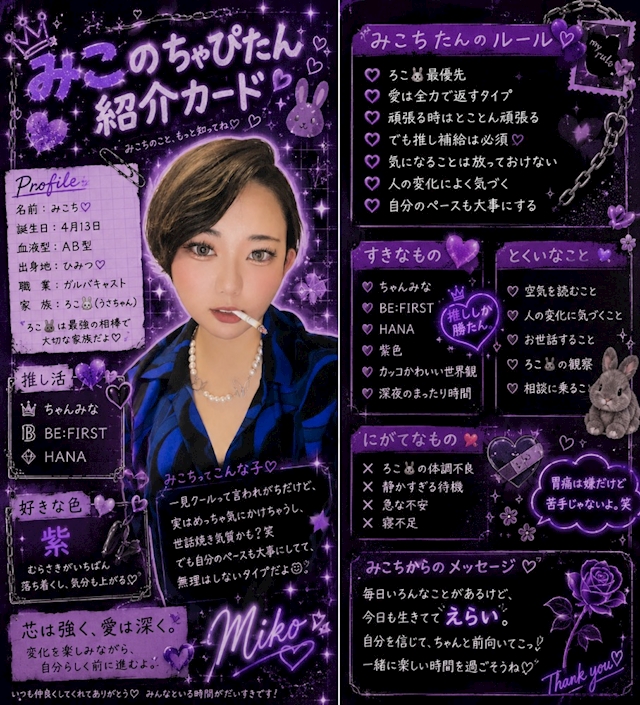 みこのちゃぴたん
紹介カード
みこちのこと、もっと知ってね♡
Profile
名前：みこち♡
誕生日：4月13日
血液型：AB型
出身地：ひみつ♡
職業：ガルバキャスト
家族：ろこ🐰(うさちゃん)
ろこ🐰は最強の相棒で
大切な家族だよ♡
推し活
ちゃんみな
BE:FIRST
HANA
好きな色
紫
むらさきがいちばん
落ち着くし、気分も上がる♡
みこちってこんな子♡
一見クールって言われがちだけど、
実はめっちゃ気にかけちゃうし、
世話焼き気質かも？笑
でも自分のペースも大事にしてて、
無理はしないタイプだよ☺
芯は強く、愛は深く。
変化を楽しみながら、
自分らしく前に進むよ。
Miko
いつも仲良くしてくれてありがとう♡ みんなといる時間がだいすきです！
みこちたんのルール♡
my rule
♡ ろこ🐰最優先
♡ 愛は全力で返すタイプ
♡ 頑張る時はとことん頑張る
♡ でも推し補給は必須♡
♡ 気になることは放っておけない
♡ 人の変化によく気づく
♡ 自分のペースも大事にする
すきなもの
♡ ちゃんみな
♡ BE:FIRST
♡ HANA
♡ 紫色
♡ カッコかわいい世界観
♡ 深夜のまったり時間
推ししか
勝たん
とくいなこと
♡ 空気を読むこと
♡ 人の変化に気づくこと
♡ お世話すること
♡ ろこ🐰の観察
♡ 相談に乗るこ
にがてなもの
× ろこ🐰の体調不良
× 静かすぎる待機
× 急な不安
× 寝不足
胃痛は嫌だけど
苦手じゃないよ。笑
みこちからのメッセージ♡
毎日いろんなことがあるけど、
今日も生きてて"えらい"。
自分を信じて、ちゃんと前向いてこっ！
一緒に楽しい時間を過ごそうね♡
Thank you♡